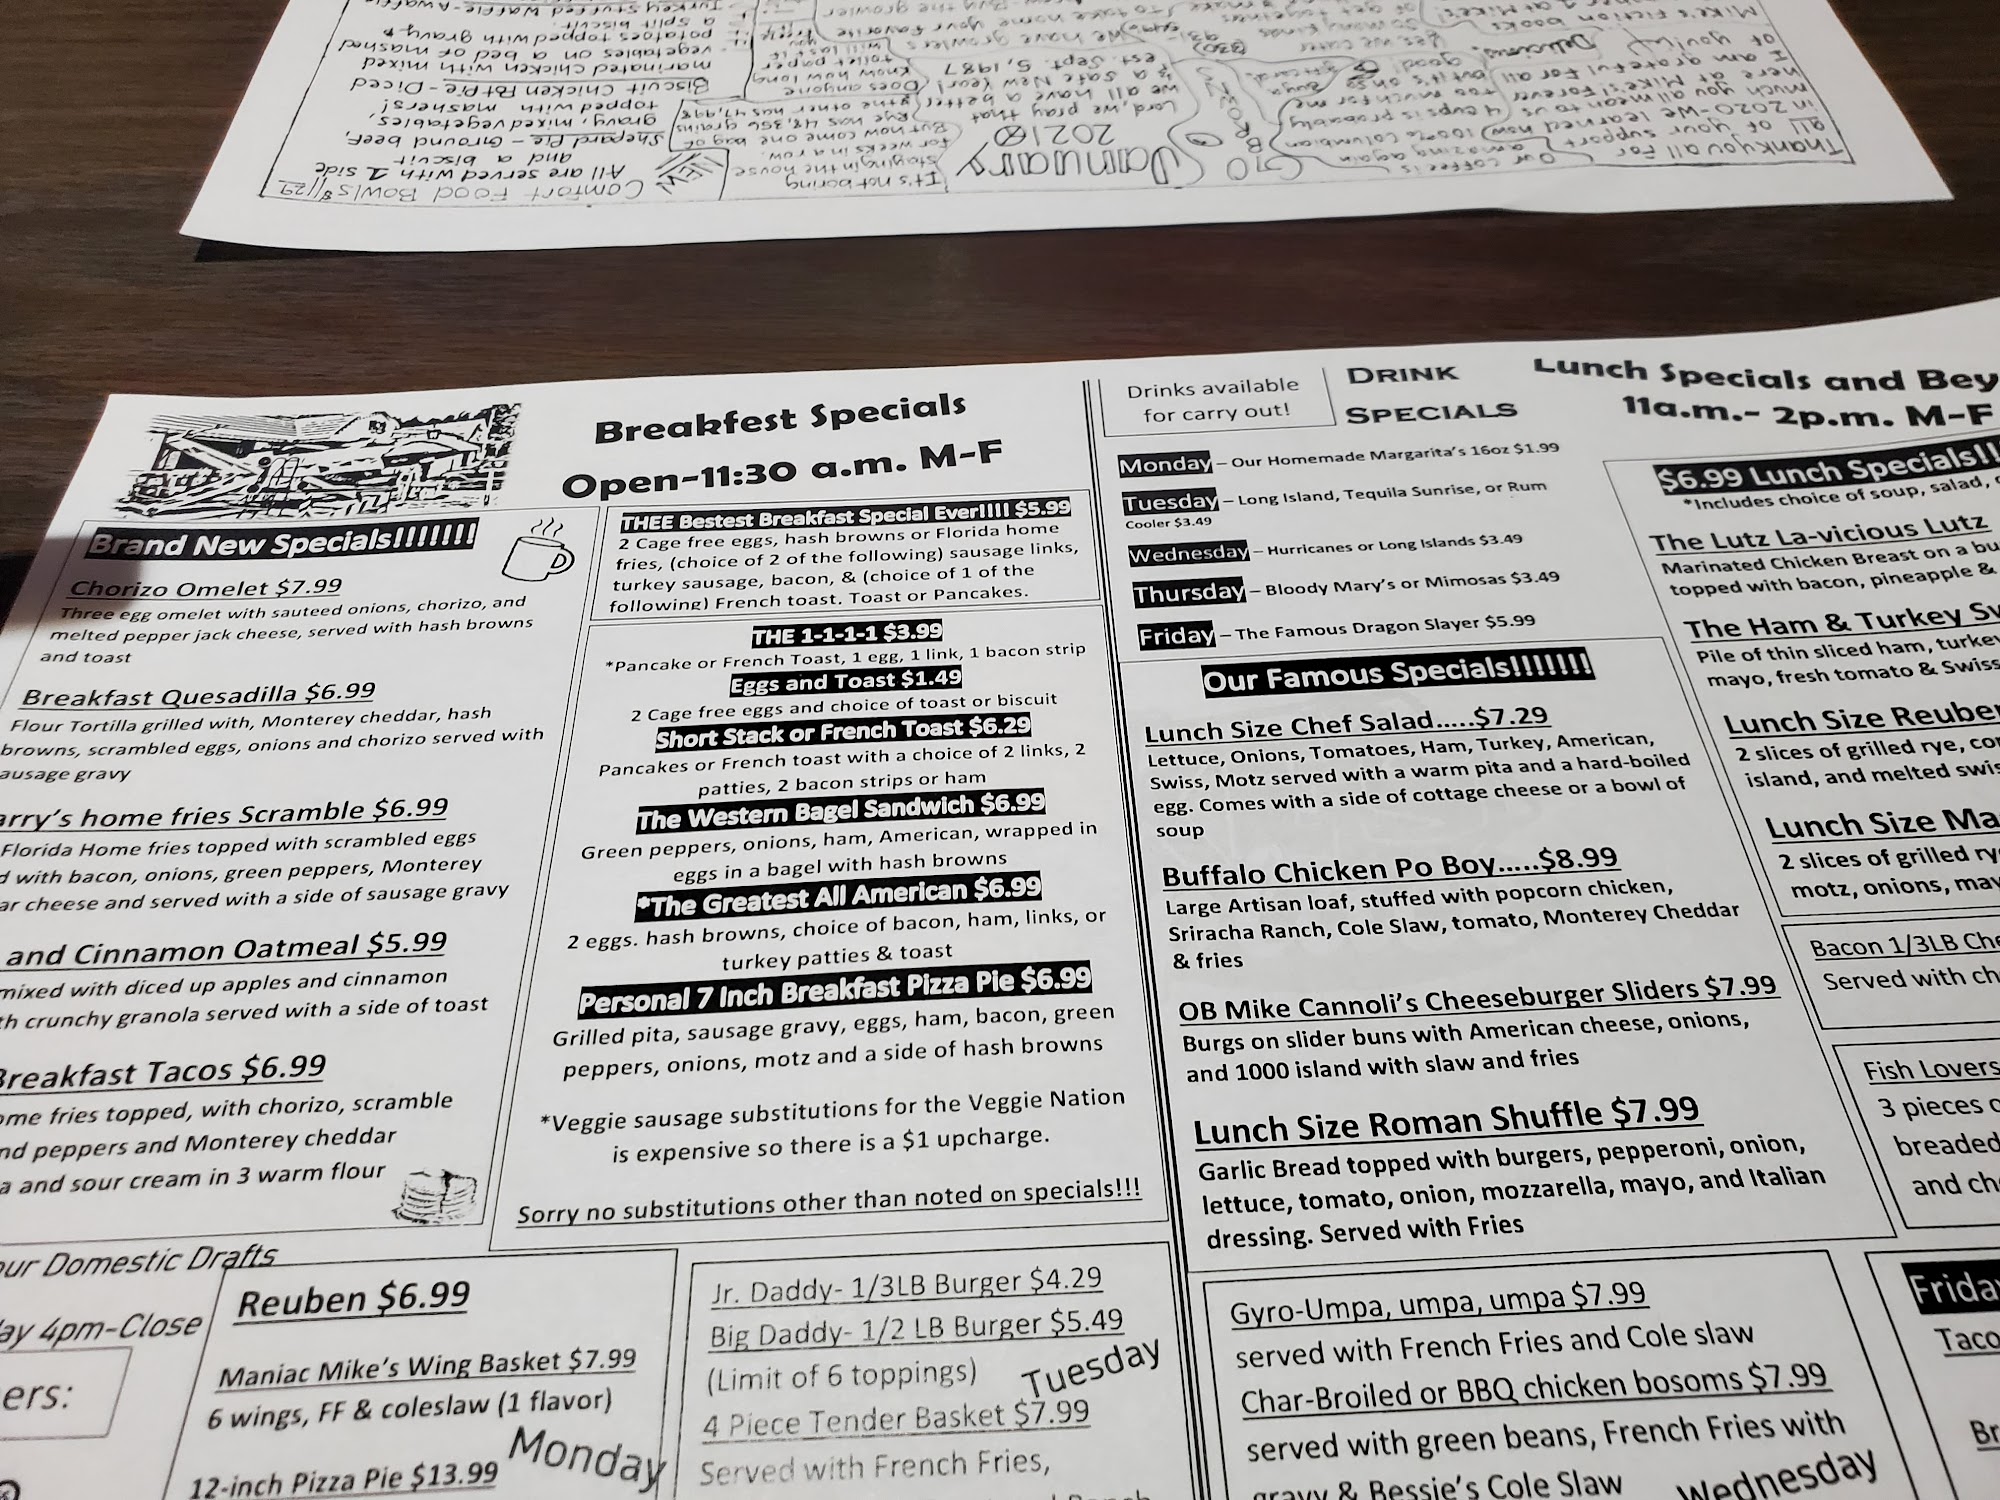 Comfort Food Bowls $11.29
All are served with 1 side
and a biscuit
NEW
Shepard Pie - Ground beef,
gravy, mixed vegetables,
topped with mashers!
Biscuit Chicken Pot Pie - Diced
marinated chicken with mixed
vegetables on a bed of mashed
potatoes topped with gravy &
a split biscuit.
It's not boring
staying in the house
for weeks in a row.
But how come one bag of
rye has 48,356 grains
& the other has 47,998
Does anyone
know how long
toilet paper
will last
January
2021
Lord, we pray that
we all have a better
& a safe New Year!
est. Sept. 5, 1987
GTO
Our coffee is
amazing again
now 100% Columbian
4 cups is probably
too much for me
but it's so
good!
Delicious.
Yes we cater
We have growlers
Thank you all for
all of your support
in 2020 - We learned how
much you all mean to us
here at Mike's! Forever
I am grateful for all
of you!
Mike's fiction books
Breakfest Specials
Open-11:30 a.m. M-F
Brand New Specials!!!!!!!
Chorizo Omelet $7.99
Three egg omelet with sauteed onions, chorizo, and
melted pepper jack cheese, served with hash browns
and toast
Breakfast Quesadilla $6.99
Flour Tortilla grilled with, Monterey cheddar, hash
browns, scrambled eggs, onions and chorizo served with
ausage gravy
arry's home fries Scramble $6.99
Florida Home fries topped with scrambled eggs
d with bacon, onions, green peppers, Monterey
ar cheese and served with a side of sausage gravy
and Cinnamon Oatmeal $5.99
mixed with diced up apples and cinnamon
th crunchy granola served with a side of toast
Breakfast Tacos $6.99
ome fries topped, with chorizo, scramble
nd peppers and Monterey cheddar
a and sour cream in 3 warm flour
THEE Bestest Breakfast Special Ever!!!! $5.99
2 Cage free eggs, hash browns or Florida home
fries, (choice of 2 of the following) sausage links,
turkey sausage, bacon, & (choice of 1 of the
following) French toast. Toast or Pancakes.
THE 1-1-1-1 $3.99
*Pancake or French Toast, 1 egg, 1 link, 1 bacon strip
Eggs and Toast $1.49
2 Cage free eggs and choice of toast or biscuit
Short Stack or French Toast $6.29
Pancakes or French toast with a choice of 2 links, 2
patties, 2 bacon strips or ham
The Western Bagel Sandwich $6.99
Green peppers, onions, ham, American, wrapped in
eggs in a bagel with hash browns
*The Greatest All American $6.99
2 eggs. hash browns, choice of bacon, ham, links, or
turkey patties & toast
Personal 7 Inch Breakfast Pizza Pie $6.99
Grilled pita, sausage gravy, eggs, ham, bacon, green
peppers, onions, motz and a side of hash browns
*Veggie sausage substitutions for the Veggie Nation
is expensive so there is a $1 upcharge.
Sorry no substitutions other than noted on specials!!!
Drinks available
for carry out!
DRINK
SPECIALS
Monday – Our Homemade Margarita's 16oz $1.99
Tuesday – Long Island, Tequila Sunrise, or Rum
Cooler $3.49
Wednesday – Hurricanes or Long Islands $3.49
Thursday – Bloody Mary's or Mimosas $3.49
Friday – The Famous Dragon Slayer $5.99
Our Famous Specials!!!!!!!
Lunch Size Chef Salad.....$7.29
Lettuce, Onions, Tomatoes, Ham, Turkey, American,
Swiss, Motz served with a warm pita and a hard-boiled
egg. Comes with a side of cottage cheese or a bowl of
soup
Buffalo Chicken Po Boy.....$8.99
Large Artisan loaf, stuffed with popcorn chicken,
Sriracha Ranch, Cole Slaw, tomato, Monterey Cheddar
& fries
OB Mike Cannoli's Cheeseburger Sliders $7.99
Burgs on slider buns with American cheese, onions,
and 1000 island with slaw and fries
Lunch Size Roman Shuffle $7.99
Garlic Bread topped with burgers, pepperoni, onion,
lettuce, tomato, onion, mozzarella, mayo, and Italian
dressing. Served with Fries
Lunch Specials and Bey
11a.m.- 2p.m. M-F
$6.99 Lunch Specials!!
*Includes choice of soup, salad,
The Lutz La-vicious Lutz
Marinated Chicken Breast on a bu
topped with bacon, pineapple &
The Ham & Turkey Sw
Pile of thin sliced ham, turkey
mayo, fresh tomato & Swiss
Lunch Size Reuben
2 slices of grilled rye, co
island, and melted swis
Lunch Size Ma
2 slices of grilled ry
motz, onions, may
Bacon 1/3LB Che
Served with ch
Fish Lovers
3 pieces o
breaded
and ch
our Domestic Drafts
ay 4pm-Close
ers:
Reuben $6.99
Maniac Mike's Wing Basket $7.99
6 wings, FF & coleslaw (1 flavor)
Monday
12-inch Pizza Pie $13.99
Jr. Daddy- 1/3LB Burger $4.29
Big Daddy- 1/2 LB Burger $5.49
(Limit of 6 toppings)
Tuesday
4 Piece Tender Basket $7.99
Served with French Fries,
Gyro-Umpa, umpa, umpa $7.99
served with French Fries and Cole slaw
Char-Broiled or BBQ chicken bosoms $7.99
served with green beans, French Fries with
gravy & Bessie's Cole Slaw
Wednesday
Frida
Taco
Br